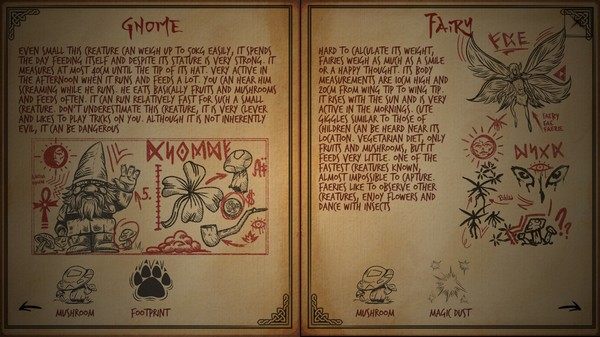 Gnome
EVEN SMALL THIS CREATURE CAN WEIGH UP TO 50KG EASILY, IT SPENDS
THE DAY FEEDING ITSELF AND DESPITE ITS STATURE IS VERY STRONG. IT
MEASURES AT MOST 40CM UNTIL THE TIP OF ITS HAT. VERY ACTIVE IN
THE AFTERNOON WHEN IT RUNS AND FEEDS A LOT. YOU CAN HEAR HIM
SCREAMING WHILE HE RUNS. HE EATS BASICALLY FRUITS AND MUSHROOMS
AND FEEDS OFTEN. IT CAN RUN RELATIVELY FAST FOR SUCH A SMALL
CREATURE. DON'T UNDERESTIMATE THIS CREATURE, IT IS VERY CLEVER
AND LIKES TO PLAY TRICKS ON YOU. ALTHOUGH IT IS NOT INHERENTLY
EVIL, IT CAN BE DANGEROUS
5.
$
MUSHROOM
FOOTPRINT
Fairy
HARD TO CALCULATE ITS WEIGHT,
FAIRIES WEIGH AS MUCH AS A SMILE
OR A HAPPY THOUGHT. ITS BODY
MEASUREMENTS ARE 10CM HIGH AND
20CM FROM WING TIP TO WING TIP.
IT RISES WITH THE SUN AND IS VERY
ACTIVE IN THE MORNINGS. CUTE
GIGGLES SIMILAR TO THOSE OF
CHILDREN CAN BE HEARD NEAR ITS
LOCATION. VEGETARIAN DIET, ONLY
FRUITS AND MUSHROOMS, BUT IT
FEEDS VERY LITTLE. ONE OF THE
FASTEST CREATURES KNOWN,
ALMOST IMPOSSIBLE TO CAPTURE.
FAERIES LIKE TO OBSERVE OTHER
CREATURES, ENJOY FLOWERS AND
DANCE WITH INSECTS
??
MUSHROOM
MAGIC DUST